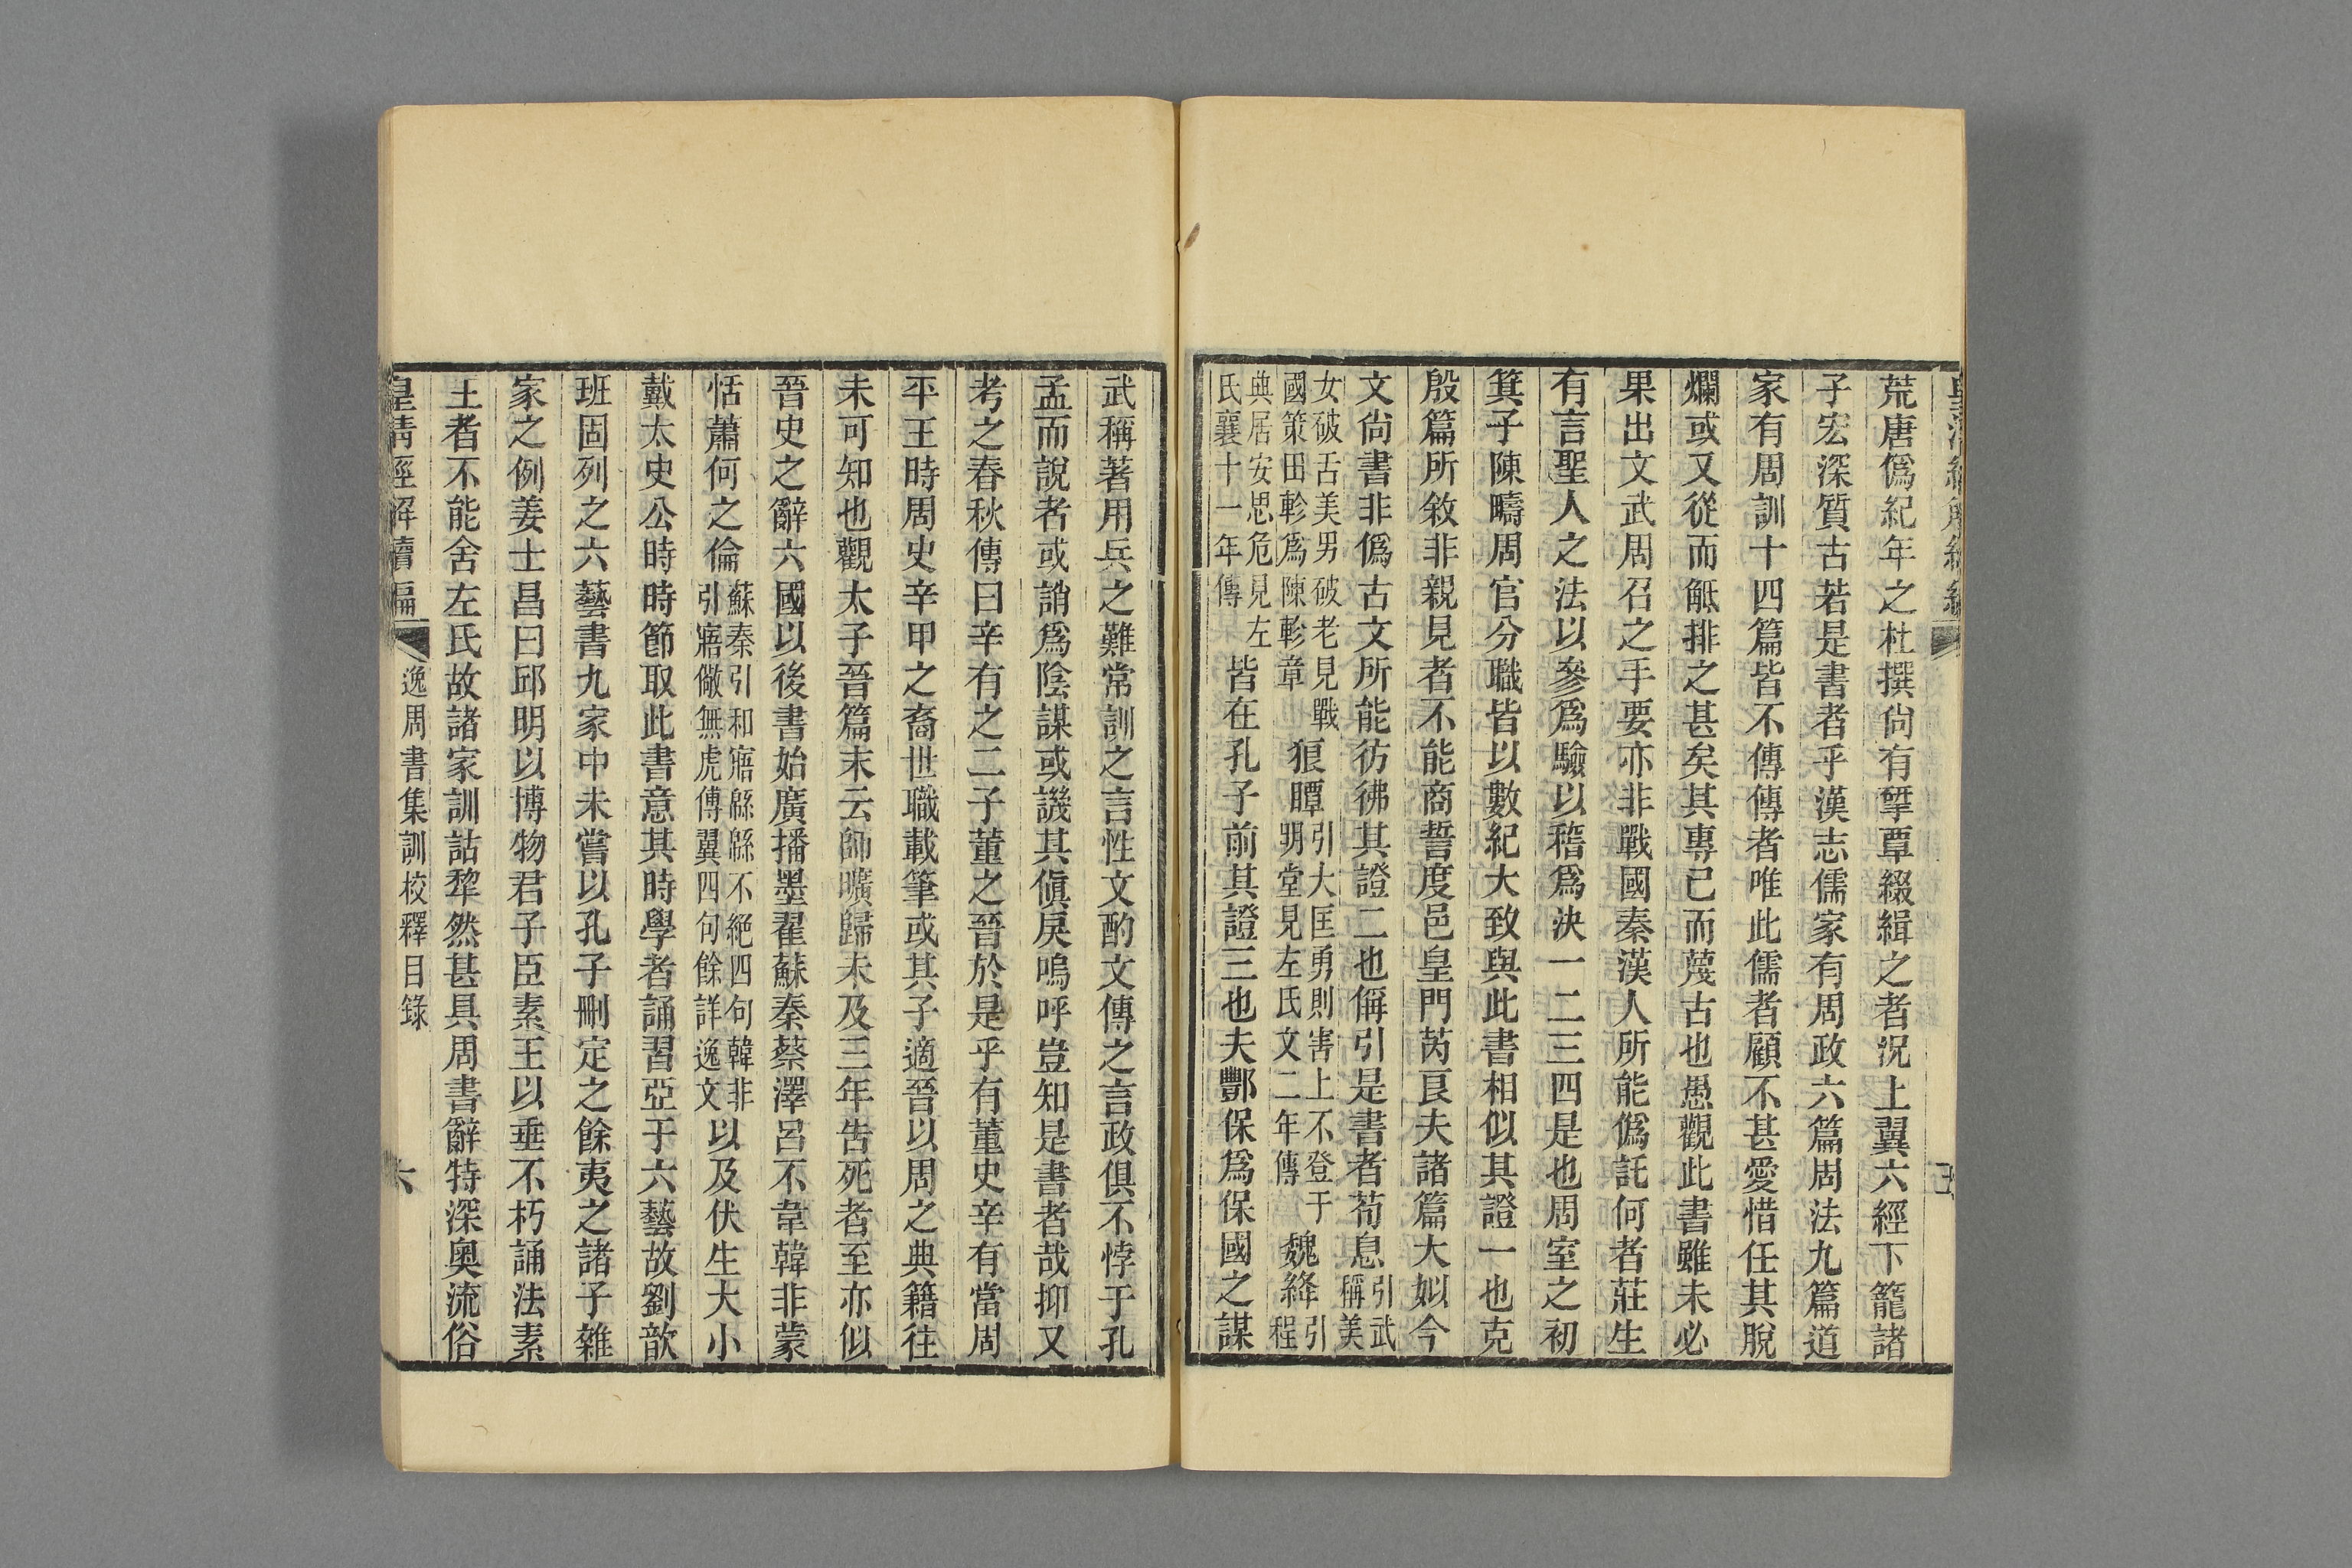 荒唐僞紀年之杜撰尙有揅覃綴緝之者況上翼六經下籠諸
子宏深質古若是書者乎漢志儒家有周政六篇周法九篇道
家有周訓十四篇皆不傳傳者唯此儒者顧不甚愛惜任其脫
爛或又從而觝排之甚矣其專己而蔑古也愚觀此書雖未必
果出文武周召之手要亦非戰國秦漢人所能僞託何者莊生
有言聖人之法以參爲驗以稽爲決一二三四是也周室之初
箕子陳疇周官分職皆以數紀大致與此書相似其證一也克
殷篇所敘非親見者不能商誓度邑皇門芮良夫諸篇大姒今
文尙書非僞古文所能彷彿其證二也偁引是書者荀息引武稱美
女破舌美男破老見戰國策田軫爲陳軫章狼瞫引大匡勇則害上不登于明堂見左氏文二年傳魏絳引程
典居安思危見左氏襄十一年傳皆在孔子前其證三也夫酆保爲保國之謀
武稱著用兵之難常訓之言性文酌文傳之言政俱不悖于孔
孟而說者或誚爲陰謀或譏其傎戾嗚呼豈知是書者哉抑又
考之春秋傳曰辛有之二子董之晉於是乎有董史辛有當周
平王時周史辛甲之裔世職載筆或其子適晉以周之典籍往
未可知也觀太子晉篇末云師曠歸未及三年告死者至亦似
晉史之辭六國以後書始廣播墨翟蘇秦蔡澤呂不韋韓非蒙
恬蕭何之倫蘇秦引和寤緜緜不絕四句韓非引寤儆無虎傅翼四句餘詳逸文以及伏生大小
戴太史公時時節取此書意其時學者誦習亞于六藝故劉歆
班固列之六藝書九家中未嘗以孔子刪定之餘夷之諸子雜
家之例姜士昌曰邱明以博物君子臣素王以垂不朽誦法素
王者不能舍左氏故諸家訓詁犂然甚具周書辭特深奧流俗
皇清經解續編 逸周書集訓校釋目錄 六